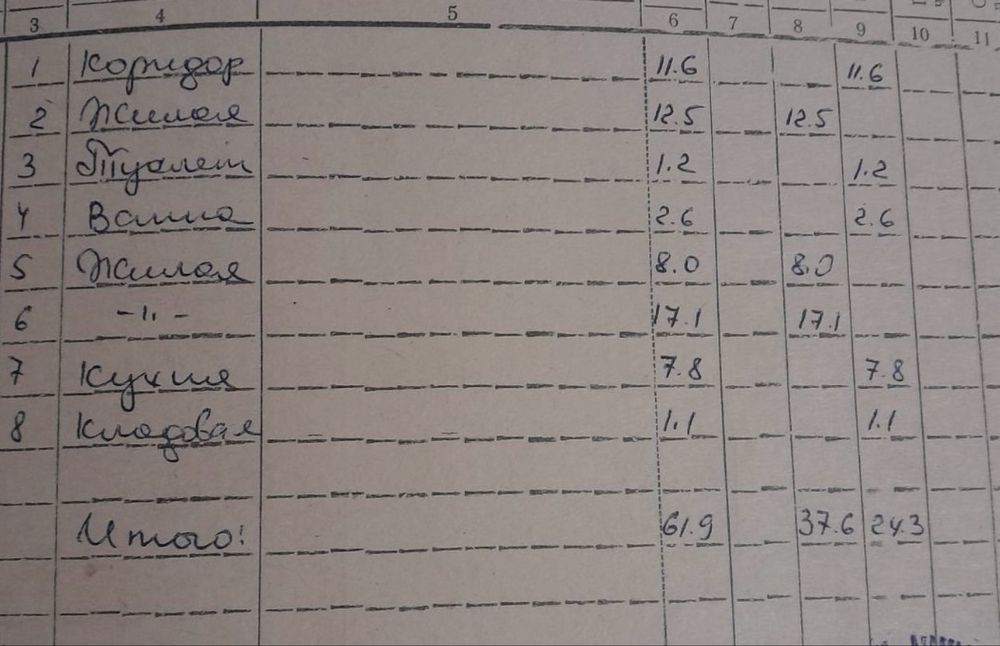 3 4 5 6 7 8 9 10 11
1 Коридор 11.6 11.6
2 Жилая 12.5 12.5
3 Туалет 1.2 1.2
4 Ванна 2.6 2.6
5 Жилая 8.0 8.0
6 -〃- 17.1 17.1
7 Кухня 7.8 7.8
8 Кладовая 1.1 1.1
Итого: 61.9 37.6 24.3